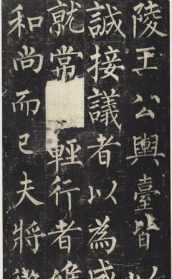 陵王公輿臺皆
誠接議者以為成
就常輕行者
和尚而已夫將